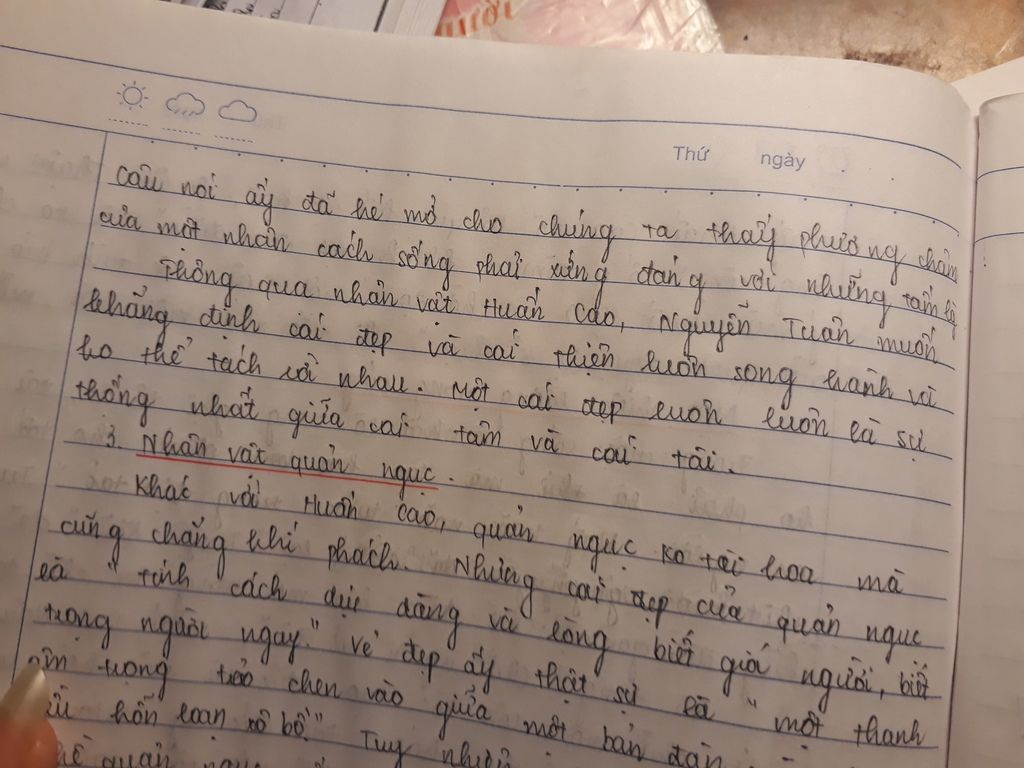 ƯỜI
Thứ ngày
câu nói ấy đã hé mở cho chúng ta thấy phương châm
của một nhân cách sống phải xứng đáng với những tấm
Thông qua nhân vật Huấn Cao, Nguyễn Tuân muốn
khẳng định cái đẹp và cái thiện luôn song hành và
ko thể tách rời nhau. Một cái đẹp luôn luôn là sự
thống nhất giữa cái tâm và cái tài.
3. Nhân vật quản ngục.
Khác với Huấn Cao, quản ngục ko tài hoa mà
cũng chẳng khí phách. Nhưng cái đẹp của quản ngục
là " tính cách dịu dàng và lòng biết giá người, biết
trọng người ngay." Vẻ đẹp ấy thật sự là " một thanh
âm trong trẻo chen vào giữa một bản đàn
hỗn loạn xô bồ" Tuy nhiên
quản